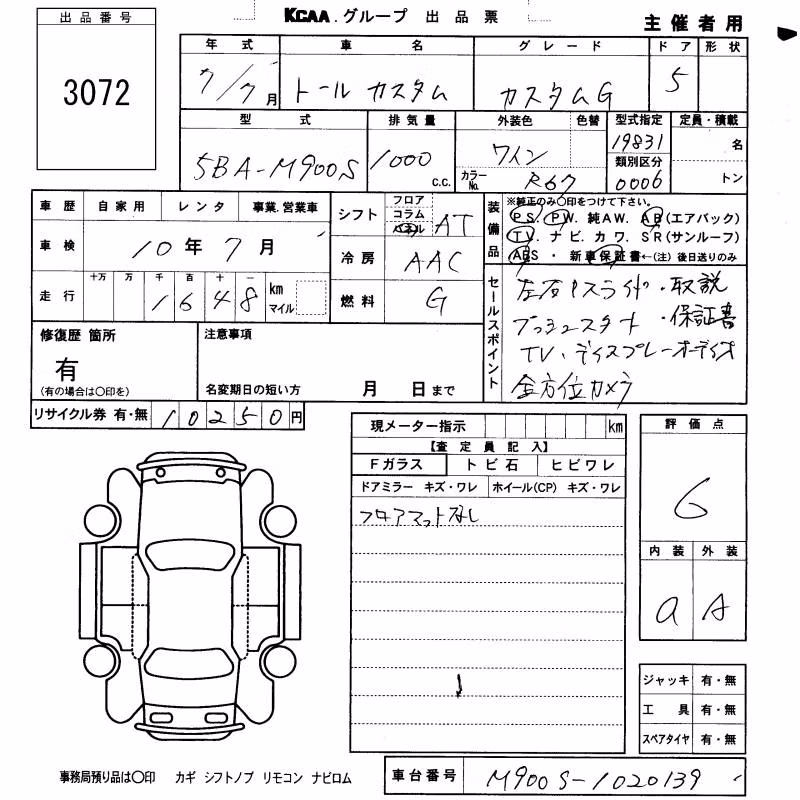 出品番号
3072
KCAA.グループ 出品票
主催者用
年式 車名 グレード ドア 形状
7/7月 トール カスタム カスタムG 5
型式 排気量 外装色 色替 型式指定 定員・積載
5BA-M900S 1000 c.c. ワイン 19831 名
カラーNo. R67 類別区分 0006 トン
車歴 自家用 レンタ 事業.営業車
車検 10年7月
走行 十万 万 千 百 十 一
1648 km マイル
シフト フロア コラム パネル AT
冷房 AAC
燃料 G
装備品 ※純正のみ〇印をつけて下さい。
PS. PW. 純AW. AB(エアバック)
TV. ナビ. カワ. SR(サンルーフ)
ABS ・ 新車保証書←(注) 後日送りのみ
セールスポイント
左右Pスライド・取説
プッシュスタート ・保証書
TV、ディスプレーオーディオ
全方位カメラ
修復歴 箇所
有
(有の場合は〇印を)
注意事項
名変期日の短い方 月 日まで
リサイクル券 有・無 10250円
現メーター指示 km
【査定員記入】
Fガラス トビ石 ヒビワレ
ドアミラー キズ・ワレ ホイール(CP) キズ・ワレ
フロアマットなし
評価点
6
内装 外装
a A
ジャッキ 有・無
工具 有・無
スペアタイヤ 有・無
事務局預り品は〇印 カギ シフトノブ リモコン ナビロム
車台番号 M900S-1020139